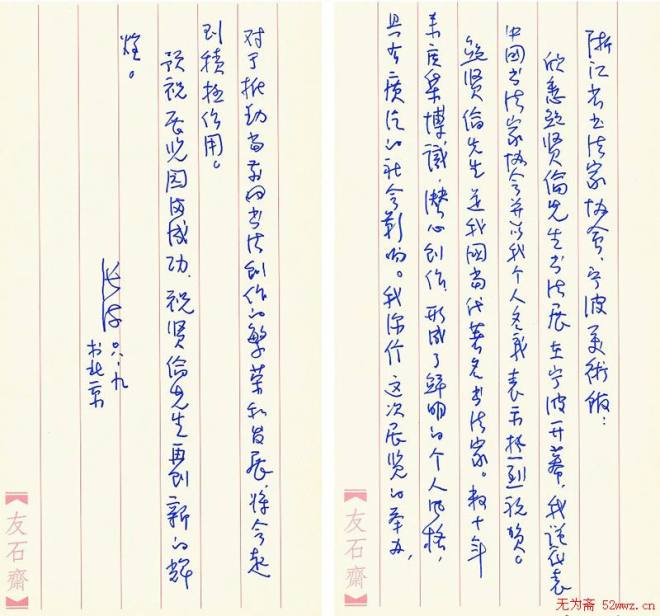 浙江省书法家协会、宁波美術館：
欣悉鲍贤倫先生书法展在宁波开幕，我谨代表
中國书法家协会并以我个人名义表示热烈祝贺。
鲍贤倫先生是我國当代著名书法家。数十年
来广集博識，潜心创作，形成了鲜明的个人风格，
具有廣泛的社会影响。我深信这次展览的举办，
对于推動当前的书法创作的繁荣和发展，将会起
到積极作用。
预祝展览园满成功，祝贤倫先生再创新的辉
煌。
张海 六.九
书北京
友石齋
友石齋
无为斋 52wwz.cn